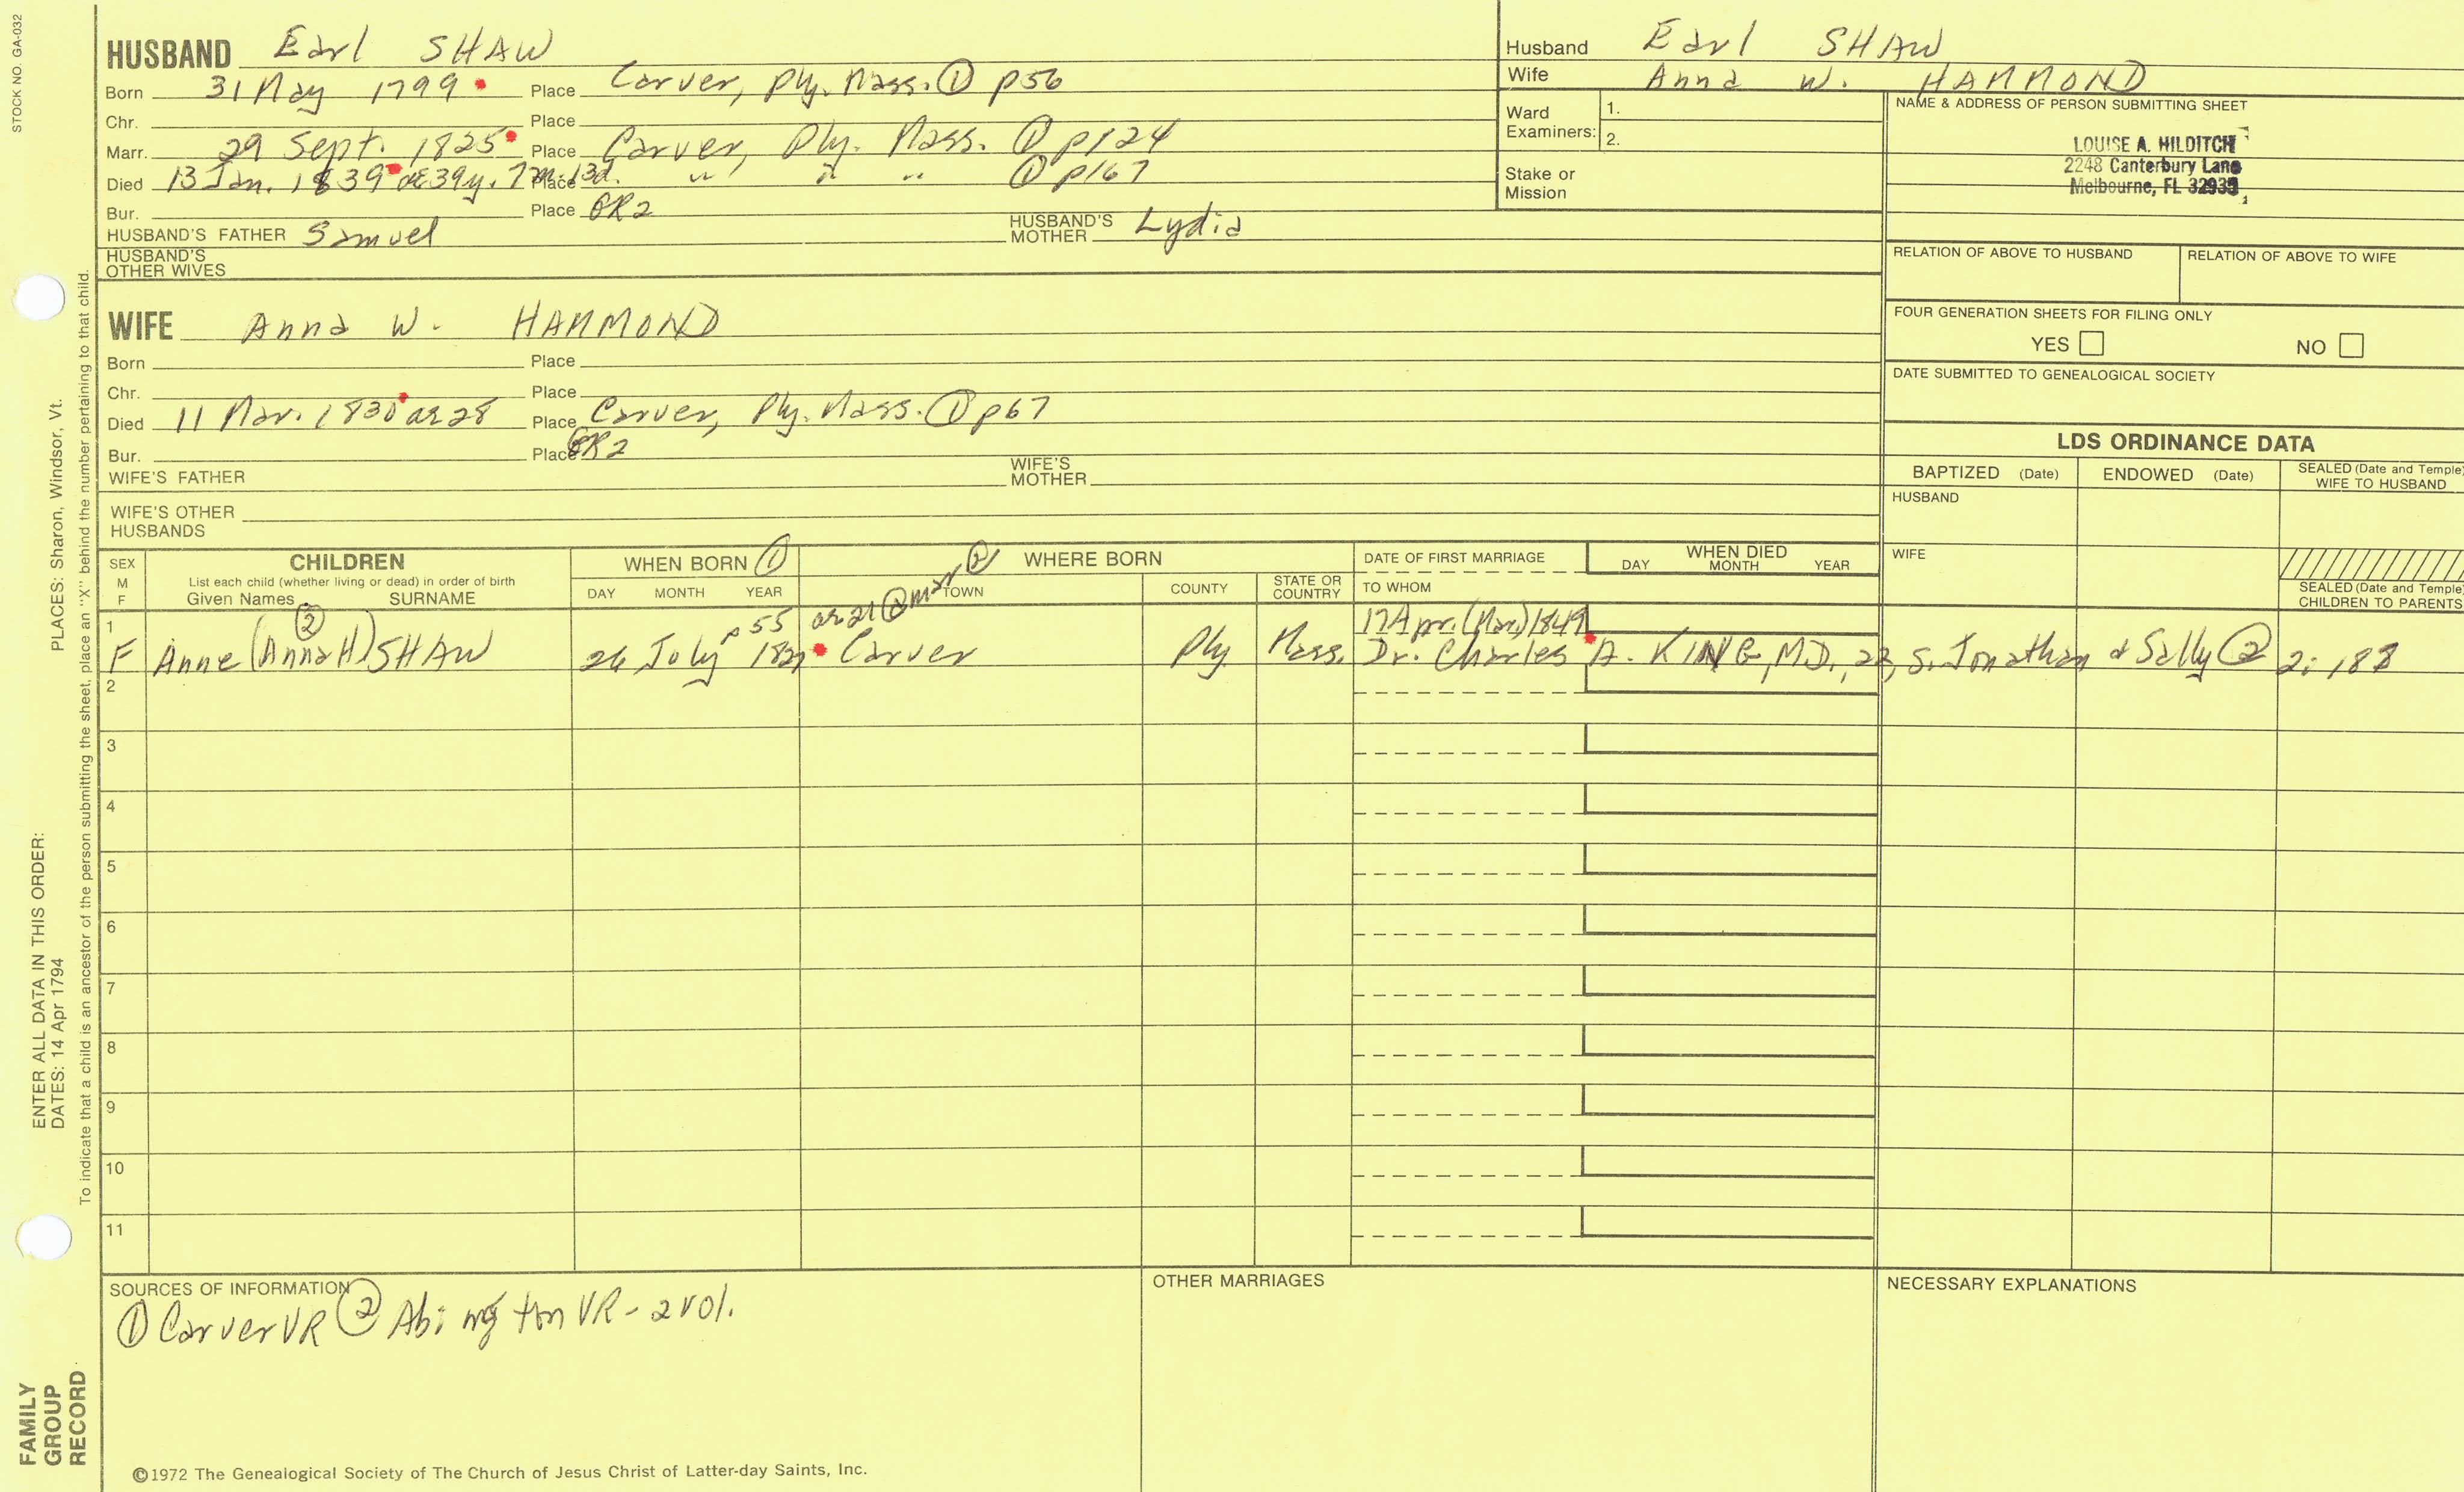 STOCK NO. GA-032
HUSBAND Earl SHAW
Born 31 May 1799 Place Carver, Ply. Mass. ① p56
Chr. Place
Marr. 29 Sept. 1825 Place Carver, Ply. Mass. ① p124
Died 13 Jan. 1839 ae 39y. 7m. 13d. Place " " " ① p167
Bur. Place GR2
HUSBAND'S FATHER Samuel HUSBAND'S MOTHER Lydia
HUSBAND'S OTHER WIVES
Husband Earl SHAW
Wife Anna W. HAMMOND
Ward Examiners: 1.
2.
Stake or Mission
NAME & ADDRESS OF PERSON SUBMITTING SHEET
LOUISE A. HILDITCH
2248 Canterbury Lane
Melbourne, FL 32935
RELATION OF ABOVE TO HUSBAND RELATION OF ABOVE TO WIFE
FOUR GENERATION SHEETS FOR FILING ONLY
YES NO
DATE SUBMITTED TO GENEALOGICAL SOCIETY
WIFE Anna W. HAMMOND
Born Place
Chr. Place
Died 11 Mar. 1830 ae 28 Place Carver, Ply. Mass. ① p67
Bur. Place GR2
WIFE'S FATHER WIFE'S MOTHER
WIFE'S OTHER HUSBANDS
LDS ORDINANCE DATA
BAPTIZED (Date) ENDOWED (Date) SEALED (Date and Temple) WIFE TO HUSBAND
HUSBAND
WIFE
SEALED (Date and Temple) CHILDREN TO PARENTS
SEX M F CHILDREN WHEN BORN ① ② WHERE BORN DATE OF FIRST MARRIAGE WHEN DIED
List each child (whether living or dead) in order of birth
Given Names SURNAME DAY MONTH YEAR TOWN COUNTY STATE OR COUNTRY TO WHOM DAY MONTH YEAR
② p55 ae 21 @ mar 17 Apr. (Mar.) 1849
1 F Anne (Anna H) SHAW 26 July Carver Ply Mass. Dr. Charles A. KING, MD., s. Jonathan & Sally ② 2: 188
2
3
4
5
6
7
8
9
10
11
SOURCES OF INFORMATION
① Carver VR ② Abington VR - 2 vol.
OTHER MARRIAGES
NECESSARY EXPLANATIONS
©1972 The Genealogical Society of The Church of Jesus Christ of Latter-day Saints, Inc.
FAMILY GROUP RECORD
ENTER ALL DATA IN THIS ORDER:
DATES: 14 Apr 1794 PLACES: Sharon, Windsor, Vt.
To indicate that a child is an ancestor of the person submitting the sheet, place an "X" behind the number pertaining to that child.